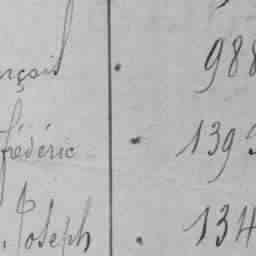 rçois . 988
frédéric . 139
Joseph . 134